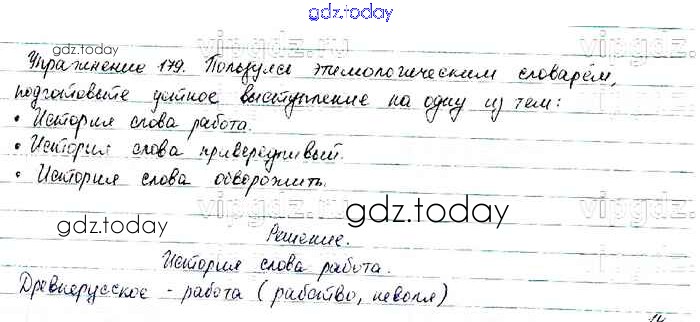 gdz.today
gdz.today vipgdz.ru vipgdz.ru
Упражнение 179. Пользуясь этимологическим словарём,
подготовьте устное выступление на одну из тем:
• История слова работа.
• История слова привередливый.
• История слова обворожить.
vipgdz.ru vipgdz.ru
gdz.today gdz.today
Решение.
История слова работа.
Древнерусское - работа (рабство, неволя)